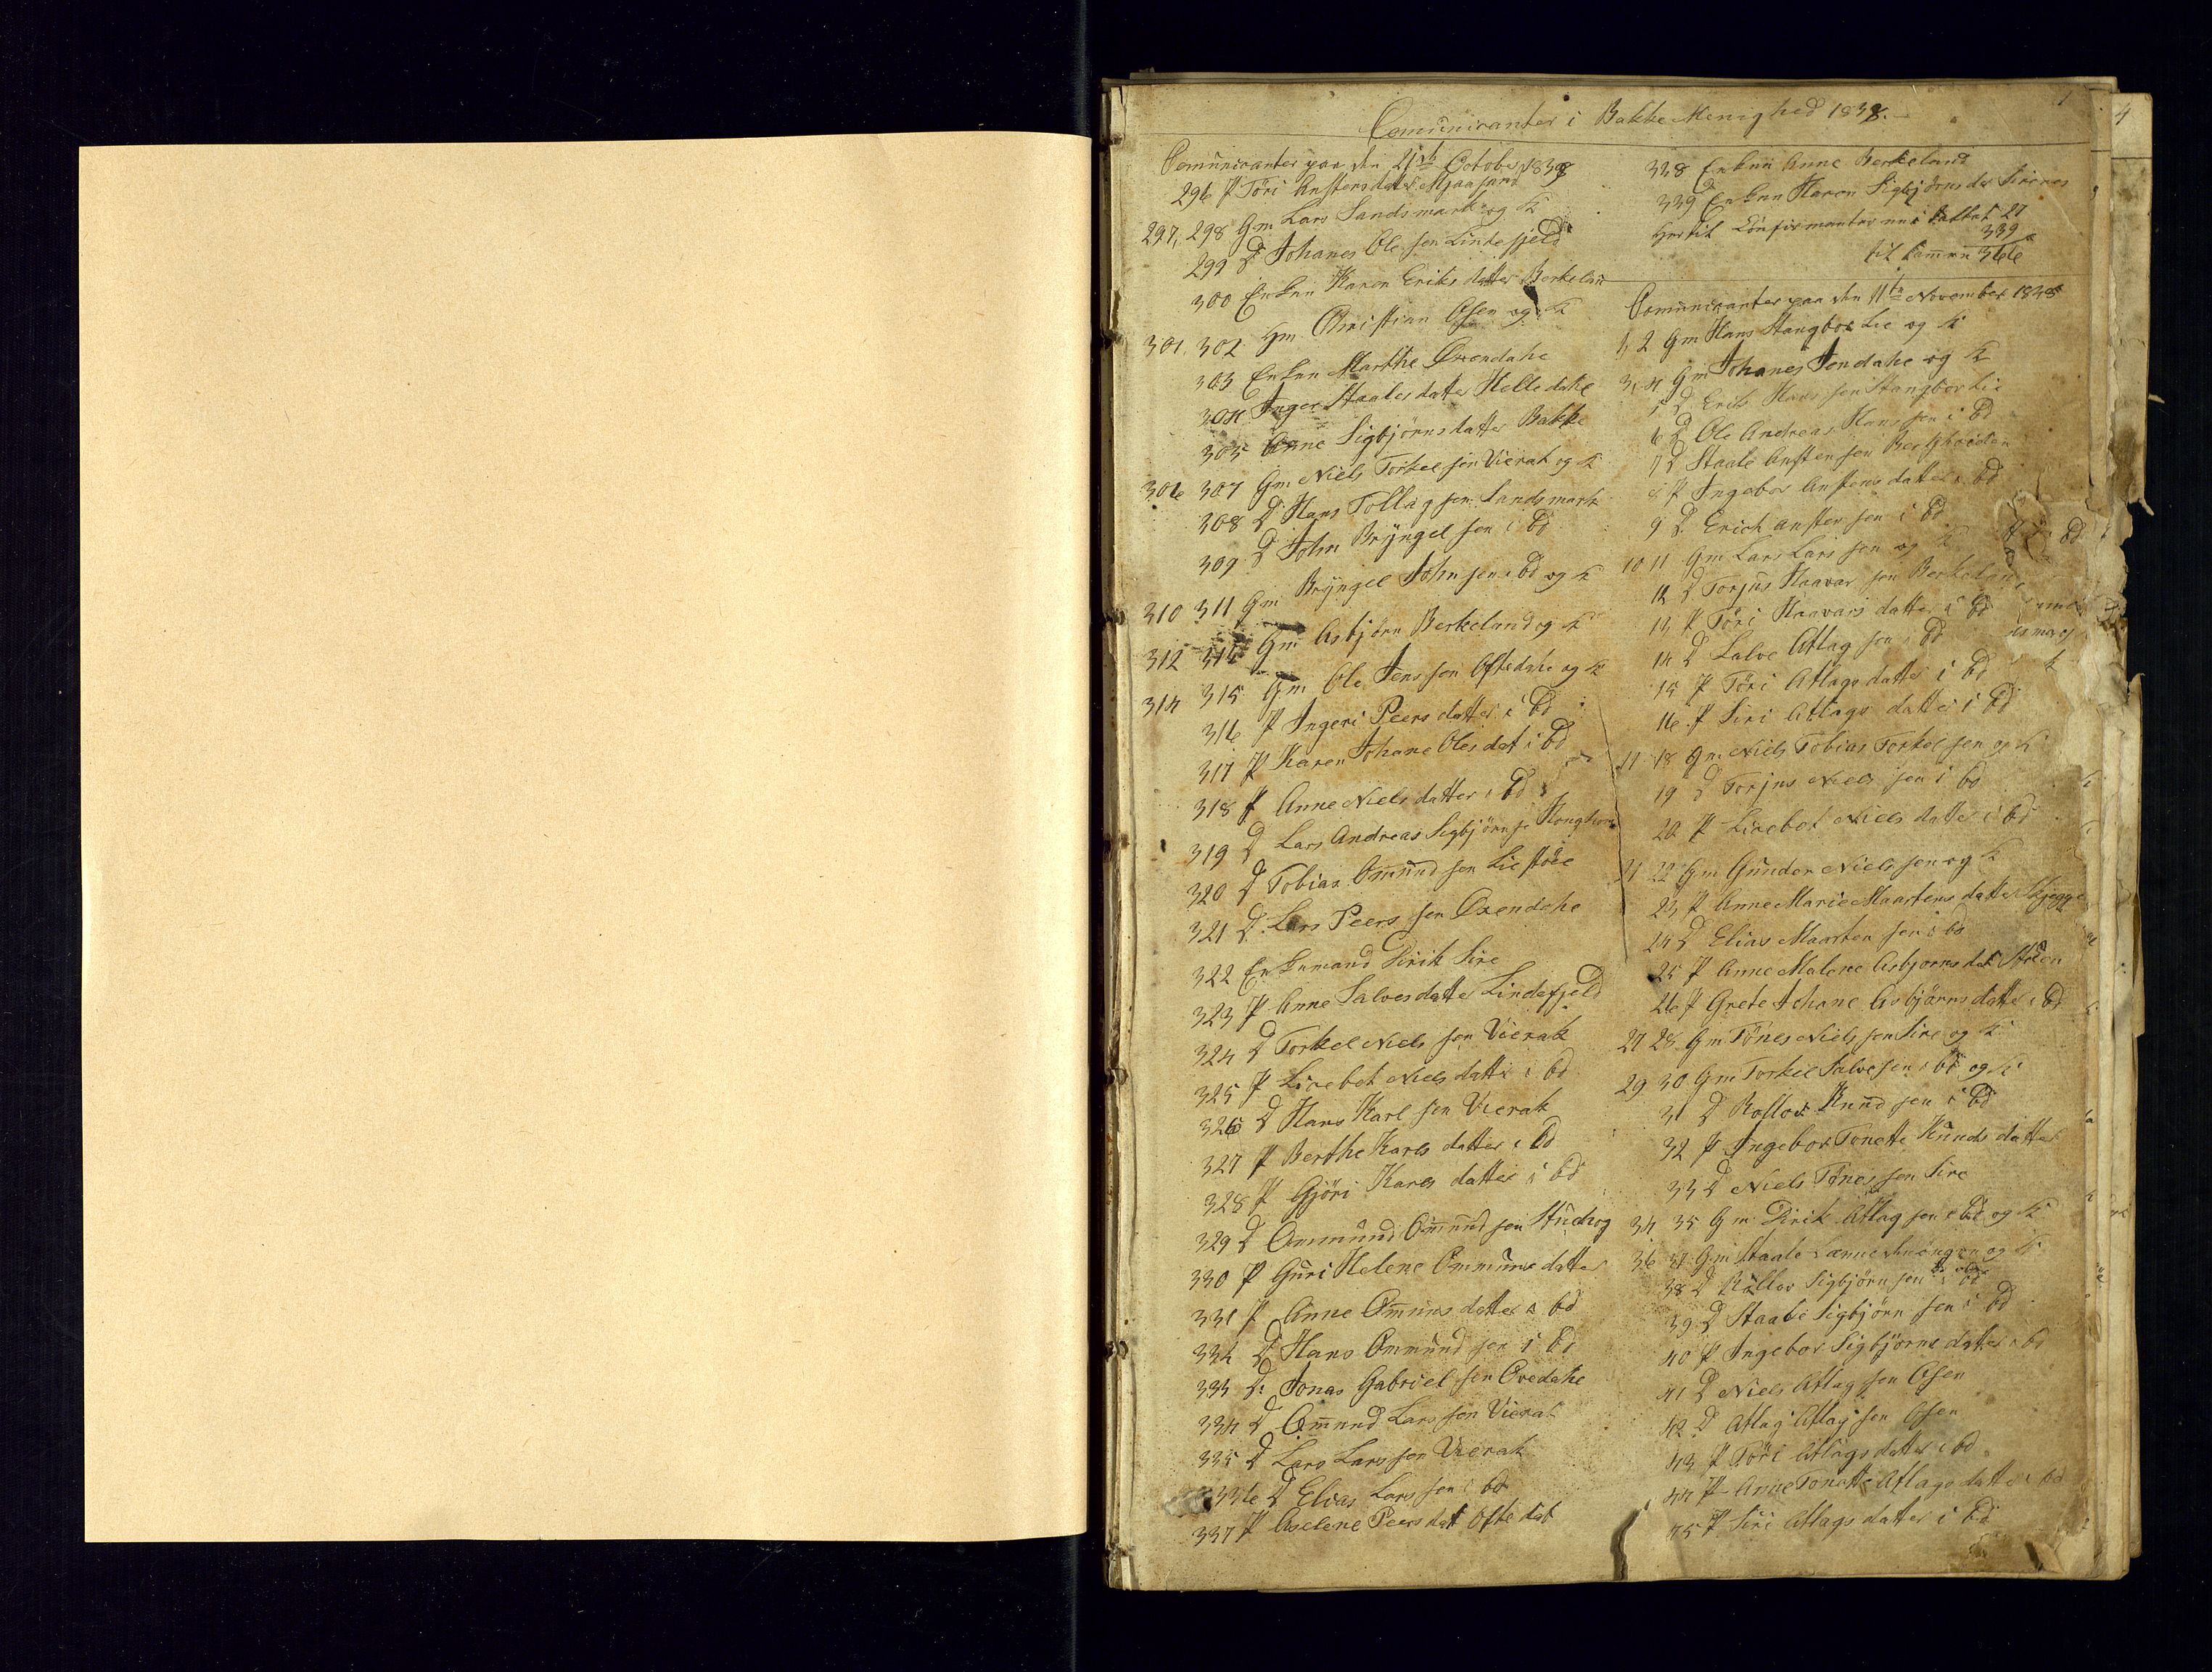 1
Comunicanter i Bakke Menighed 1838.
Comunicanter paa den 21de October 1838
296 P Töri Anstensdatter
297, 298 Gm Lars Landsmark og K
299 D Johanes Ole sen Lindefjeld
300 Enken Karen Eriks datter Berkelan
301. 302 Gm Christian Osen og K
303 Enken Marthe Oxendahe
304 Inger Staalesdatter Helledahe
305 Anne Sigbjörnsdatter Bakke
306 307 Gm Niels Torkelsen Vierak og K
308 D Hans Tollagsen Landsmark
309 D John Bryngel sen i bd
310 311 Gm Bryngel John sen i bd og K
312 313 Gm Asbjörn Berkeland og K
314 315 Gm Ole Jens sen Oftedahe og K
316 P Ingeri Peersdatter i bd
317 P Karen Johane Oles dat i bd
318 P Anne Niels datter i bd
319 D Lars Andreas Sigbjörn se
320 D Tobias Omund sen Liestöle
321 D Lars Peers sen Oxendahe
322 Enkemand Dirik Sire
323 P Anne Salvesdatter Lindefjeld
324 D Torkel Niels sen Vierak
325 P Lisebet Niels datter i bd
326 D Hans Karl sen Vierak
327 P Berthe Karls datter i bd
328 P Gjöri Karls datter i bd
329 D Ommund Omund sen
330 P Guri Helene Ommunds datter
331 P Anne Omuns datter i bd
332 D Hans Ommund sen i bd
333 D: Jonas Gabriel sen Ovedahe
334 D Omund Lars sen Vierak
335 D Lars Lars sen Vierak
336 D Elias Lars sen i bd
337 P Aselene Peersdatt Oftedal
338 Enken Anne Berkeland
339 Enken Karen Sigbjörnsdr Sirenes
hertil Confirmanterne i tallet 27
339
til samen 366
Comunicanter paa den 11te November 1838
1, 2 Gm Hans Stangbor Lie og K
3, 4 Gm Johanes Jendahe og K
5 D Erik Hans sen Stangbor Lie
6 D Ole Andreas Hans sen i bd
7 D Staale Ansten sen
8 P Ingebor Anstens datter i bd
9 D Erich Ansten sen i bd
10 11 Gm Lars Lars sen og K
12 D Torjus Haavar sen Berkelan
13 P Töri Haavars datter i bd
14 D Salve Atlag sen i bd
15 P Töri Atlags datter i bd
16 P Siri Atlags datter i bd
17 18 Gm Niels Tobias Torkelsen og K
19 D Torjus Niels sen i bd
20 P Lisebet Niels datter i bd
21 22 Gm Gunder Niels sen og K
23 P Anne Marie Maartens datter
24 D Elias Maarten sen i bd
25 P Anne Malene Asbjorns dat
26 P Grete Johane Asbjörns datter i bd
27 28 Gm Tönes Niels sen Sire og K
29 30 Gm Torkel Salvesen i bd og K
31 D Rollov Knud sen i bd
32 P Ingebor Tonette Knuds datter
33 D Niels Tönes sen Sire
34 35 Gm Dirik Atlag sen i bd og K
36 37 Gm Staale og K
38 D Rollov Sigbjörn sen i bd
39 D Staale Sigbjörn sen i bd
40 P Ingebor Sigbjörns datter i bd
41 D Niels Atlag sen Osen
42 D Atlag Atlag sen Osen
43 P Töri Atlags datter i bd
44 P Anne Tonette Atlags datter i bd
45 P Siri Atlags datter i bd
4